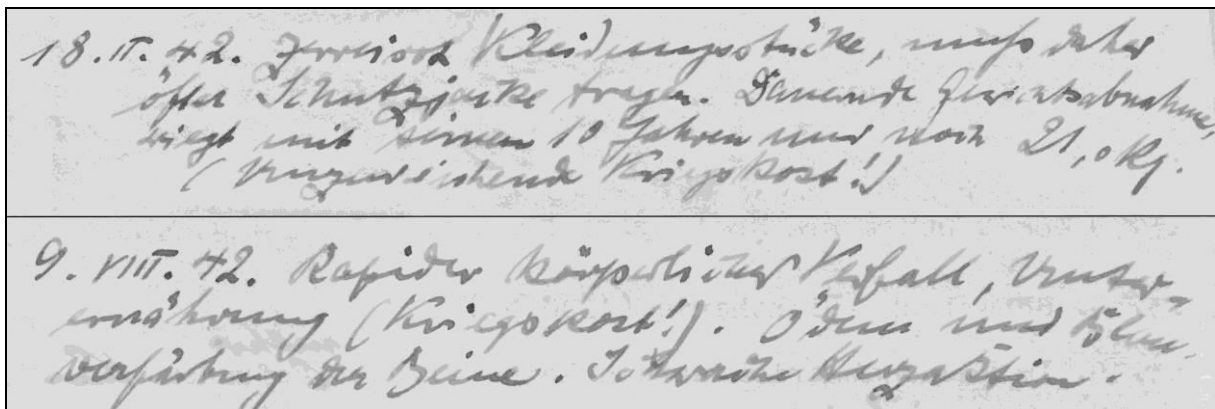 18.II.42. Zerreisst Kleidungsstücke, muß daher
öfter Schutzjacke tragen. Dauernde Gewichtsabnahme,
wiegt mit seinen 10 Jahren nur noch 21,0 Kg.
(Unzureichende Kriegskost!)
9.VIII.42. Rapider körperlicher Verfall, Unter-
ernährung (Kriegskost!). Ödeme und Blau-
verfärbung der Beine. Schwache Herzaktion.